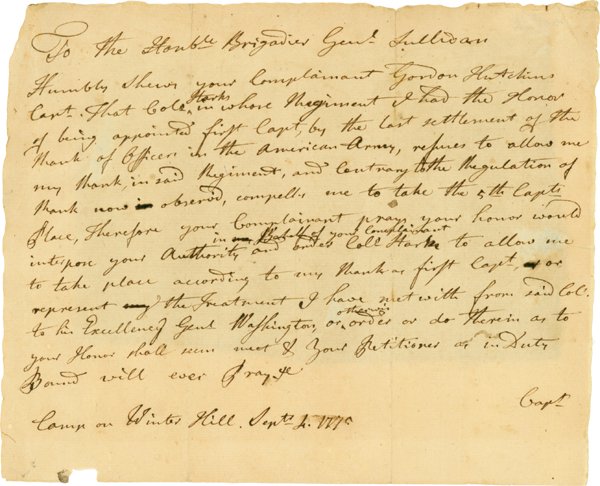 To the Honble Brigadier Genl Sullivan
Humbly shews your Complainant Gordon Hutchins
Capt. That Colo Starks in whose Regiment I had the Honor
of being appointed first Capt, by the last settlement of the
Rank of Officers in the American Army, refuses to allow me
my Rank, in said Regiment, and Contrary to the Regulation of
Rank now observed, compells me to take the 5th Capts
Place, Therefore your Complainant prays your honor would
interpose your Authority in Behalf of your Complainant and order Coll Stark to allow me
to take place according to my Rank as first Capt, or
represent the Treatment I have met with from said Col.
to his Excellency Genl Washington, or otherwise order or do therein as to
your Honor shall seem meet & Your Petitioner as in Duty
Bound will ever Pray &c
Capt
Camp on Winter Hill. Septr 4. 1775